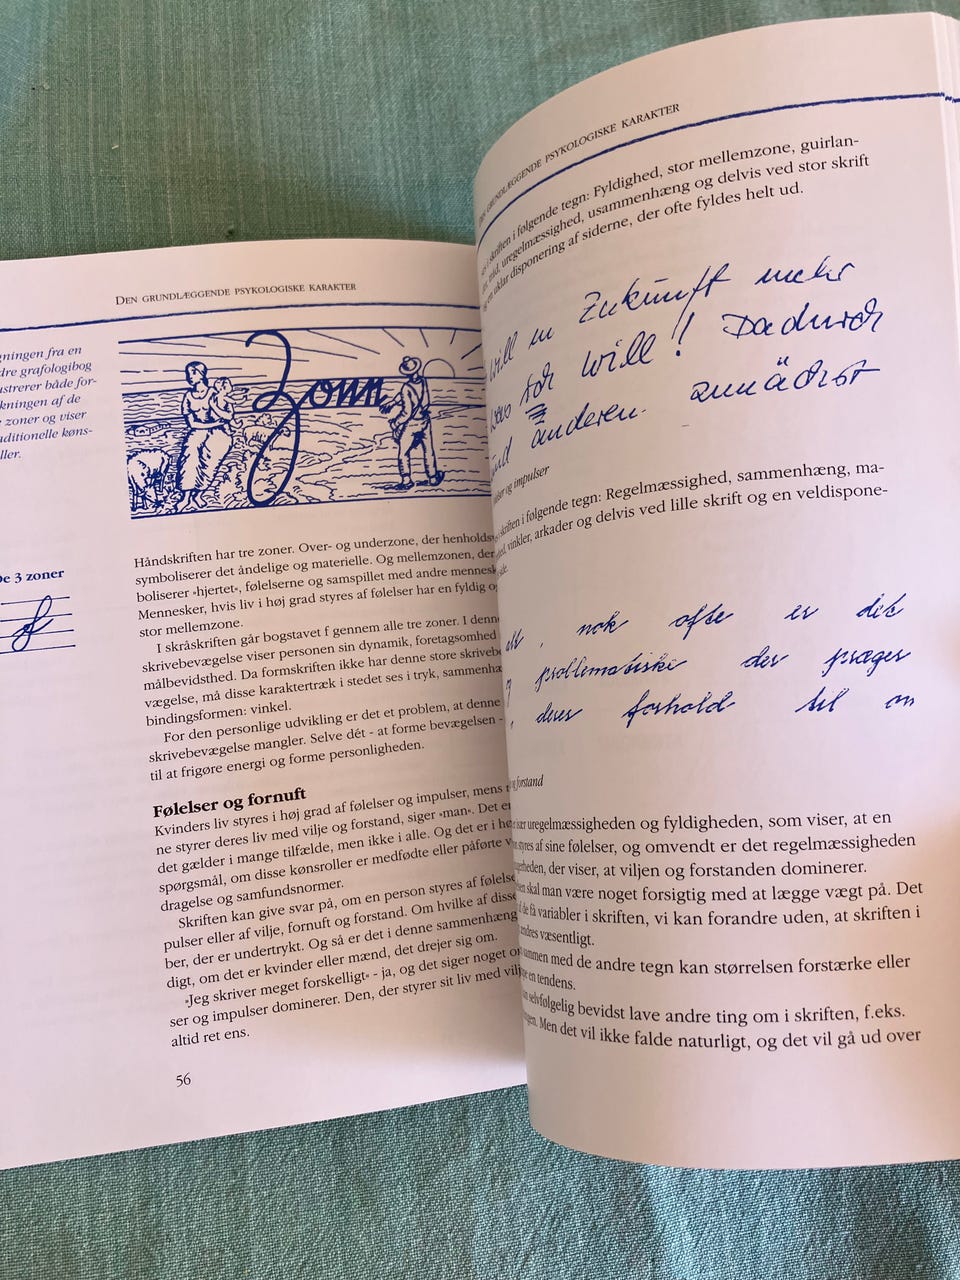 DEN GRUNDLÆGGENDE PSYKOLOGISKE KARAKTER
fra en
grafologibog
både for-
af de
zoner og viser
køns-
Zonn
De 3 zoner
f
Håndskriften har tre zoner. Over- og underzone, der
symboliserer det åndelige og materielle. Og mellemzonen, der
»hjertet«, følelserne og samspillet med andre
Mennesker, hvis liv i høj grad styres af følelser har en fyldig
stor mellemzone.
I skråskriften går bogstavet f gennem alle tre zoner. I
skrivebevægelse viser personen sin dynamik, foretagsomhed
målbevidsthed. Da formskriften ikke har denne store
vægelse, må disse karaktertræk i stedet ses i tryk,
bindingsformen: vinkel.
For den personlige udvikling er det et problem, at denne
skrivebevægelse mangler. Selve dét - at forme bevægelsen -
til at frigøre energi og forme personligheden.
Følelser og fornuft
Kvinders liv styres i høj grad af følelser og impulser, mens
ne styrer deres liv med vilje og forstand, siger »man«. Det
det gælder i mange tilfælde, men ikke i alle. Og det er i
spørgsmål, om disse kønsroller er medfødte eller påførte
dragelse og samfundsnormer.
Skriften kan give svar på, om en person styres af
pulser eller af vilje, fornuft og forstand. Om hvilke af
ber, der er undertrykt. Og så er det i denne sammenhæng
digt, om det er kvinder eller mænd, det drejer sig om.
»Jeg skriver meget forskelligt« - ja, og det siger noget
ser og impulser dominerer. Den, der styrer sit liv med
altid ret ens.
56
DEN GRUNDLÆGGENDE PSYKOLOGISKE KARAKTER
i skriften i følgende tegn: Fyldighed, stor mellemzone, guirlan-
uregelmæssighed, usammenhæng og delvis ved stor skrift
uklar disponering af siderne, der ofte fyldes helt ud.
will in Zukunft mehr
was ich will! Dadurch
und änderen. zunächst
og impulser
skriften i følgende tegn: Regelmæssighed, sammenhæng, ma-
vinkler, arkader og delvis ved lille skrift og en veldispone-
side.
nok ofte er det
problematiske der præger
deres forhold til om
og forstand
uregelmæssigheden og fyldigheden, som viser, at en
styres af sine følelser, og omvendt er det regelmæssigheden
der viser, at viljen og forstanden dominerer.
skal man være noget forsigtig med at lægge vægt på. Det
af de få variabler i skriften, vi kan forandre uden, at skriften i
ændres væsentligt.
sammen med de andre tegn kan størrelsen forstærke eller
en tendens.
selvfølgelig bevidst lave andre ting om i skriften, f.eks.
Men det vil ikke falde naturligt, og det vil gå ud over